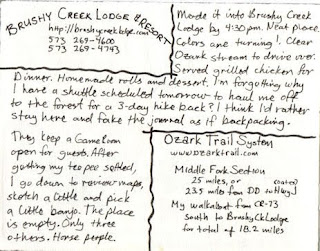 BRUSHY CREEK LODGE & RESORT
http://brushycreeklodge.com
573 269-4600
573 269-4743
Made it into Brushy Creek
Lodge by 4:30pm. Neat place.
Colors are turning!. Clear
Ozark stream to drive over.
Served grilled chicken for
Dinner. Homemade rolls and dessert. I'm forgetting why
I have a shuttle scheduled tomorrow to haul me off
to the forest for a 3-day hike back? I think I'd rather
stay here and fake the journal as if backpacking.
They keep a Game Room
open for guests. After
getting my teepee settled,
I go down to review maps,
sketch a little and pick
a little banjo. The place
is empty. Only three
others. Horse people.
OZARK TRAIL SYSTEM
www.ozarktrail.com
Middle Fork Section
25 miles, or
23.5 miles from DD to Hwy J
My walkabout from CR-73
south to Brushy Ck Lodge
for total of 18.2 miles